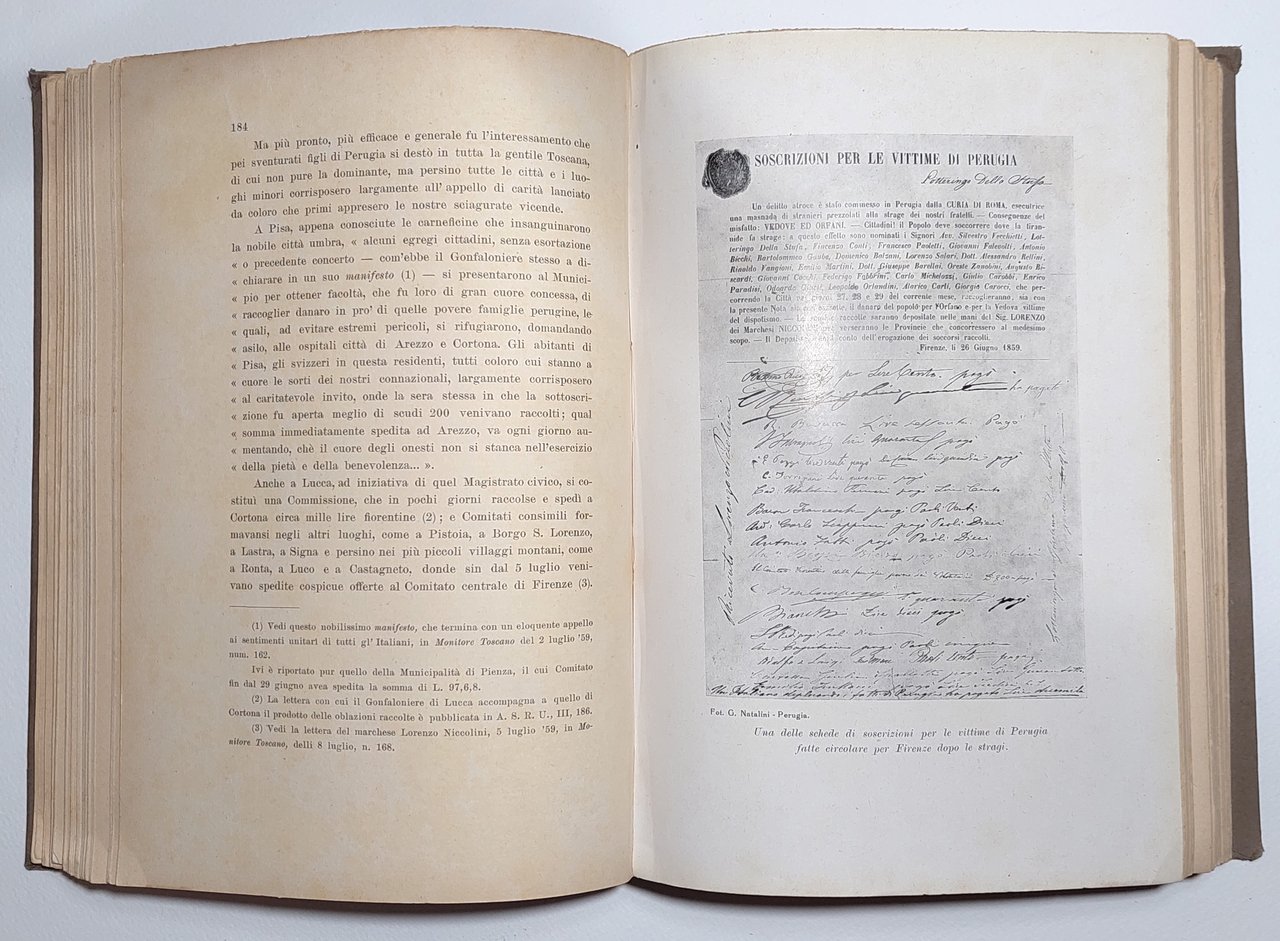 184
Ma più pronto, più efficace e generale fu l'interessamento che
pei sventurati figli di Perugia si destò in tutta la gentile Toscana,
di cui non pure la dominante, ma persino tutte le città e i luo-
ghi minori corrisposero largamente all'appello di carità lanciato
da coloro che primi appresero le nostre sciagurate vicende.
A Pisa, appena conosciute le carneficine che insanguinarono
la nobile città umbra, « alcuni egregi cittadini, senza esortazione
« o precedente concerto — com'ebbe il Gonfaloniere stesso a di-
« chiarare in un suo manifesto (1) — si presentarono al Munici-
« pio per ottener facoltà, che fu loro di gran cuore concessa, di
« raccoglier danaro in pro' di quelle povere famiglie perugine, le
« quali, ad evitare estremi pericoli, si rifugiarono, domandando
« asilo, alle ospitali città di Arezzo e Cortona. Gli abitanti di
« Pisa, gli svizzeri in questa residenti, tutti coloro cui stanno a
« cuore le sorti dei nostri connazionali, largamente corrisposero
« al caritatevole invito, onde la sera stessa in che la sottoscri-
« zione fu aperta meglio di scudi 200 venivano raccolti; qual
« somma immediatamente spedita ad Arezzo, va ogni giorno au-
« mentando, chè il cuore degli onesti non si stanca nell'esercizio
« della pietà e della benevolenza... ».
Anche a Lucca, ad iniziativa di quel Magistrato civico, si co-
stituì una Commissione, che in pochi giorni raccolse e spedì a
Cortona circa mille lire fiorentine (2); e Comitati consimili for-
mavansi negli altri luoghi, come a Pistoia, a Borgo S. Lorenzo,
a Lastra, a Signa e persino nei più piccoli villaggi montani, come
a Ronta, a Luco e a Castagneto, donde sin dal 5 luglio veni-
vano spedite cospicue offerte al Comitato centrale di Firenze (3).
(1) Vedi questo nobilissimo manifesto, che termina con un eloquente appello
ai sentimenti unitari di tutti gl'Italiani, in Monitore Toscano del 2 luglio '59,
num. 162.
Ivi è riportato pur quello della Municipalità di Pienza, il cui Comitato
fin dal 29 giugno avea spedita la somma di L. 97,6,8.
(2) La lettera con cui il Gonfaloniere di Lucca accompagna a quello di
Cortona il prodotto delle oblazioni raccolte è pubblicata in A. S. R. U., III, 186.
(3) Vedi la lettera del marchese Lorenzo Niccolini, 5 luglio '59, in Mo-
nitore Toscano, delli 8 luglio, n. 168.
SOSCRIZIONI PER LE VITTIME DI PERUGIA
Lotteringo Della Stufa
Un delitto atroce è stato commesso in Perugia dalla CURIA DI ROMA, esecutrice
una masnada di stranieri prezzolati alla strage dei nostri fratelli. — Conseguenze del
misfatto: VEDOVE ED ORFANI. — Cittadini! il Popolo deve soccorrere dove la tiran-
nide fa strage: a questo effetto sono nominati i Signori Avv. Silvestro Vecchietti, Lot-
teringo Della Stufa, Fiorenzo Conti, Francesco Paoletti, Giovanni Falevolti, Antonio
Bicchi, Bartolommeo Gauba, Domenico Balzani, Lorenzo Salari, Dott. Alessandro Bellini,
Rinaldo Fangioni, Emilio Martini, Dott. Giuseppe Barellai, Oreste Zanobini, Augusto Ri-
scardi, Giovanni Cacchi, Federigo Fabbrini, Carlo Michelozzi, Giulio Carobbi, Enrico
Paradisi, Odoardo Leopoldo Orlandini, Alarico Carli, Giorgio Carocci, che per-
correndo la Città nei giorni 27, 28 e 29 del corrente mese, raccoglieranno, sia con
la presente Nota il danaro del popolo per l'Orfano e per la Vedova vittime
del dispotismo. — Le raccolte saranno depositate nelle mani del Sig. LORENZO
dei Marchesi verseranno le Provincie che concorressero al medesimo
scopo. — Il Deposit conto dell'erogazione dei soccorsi raccolti.
Firenze, li 26 Giugno 1859.
per Lire Cento. pagò
ha pagato
Lire sessanta. Pagò
lire quaranta pagò
pagò
pagò
pagò Lire Cento
Baron pagò Paoli Venti
Carlo pagò Paoli Dieci
Antonio pagò Paoli Dieci
pagò
quaranta pagò
Lire dieci pagò
pagò Paoli dieci
pagò Paoli cinque
Adolfo e Luigi
Fot. G. Natalini - Perugia.
Una delle schede di soscrizioni per le vittime di Perugia
fatte circolare per Firenze dopo le stragi.